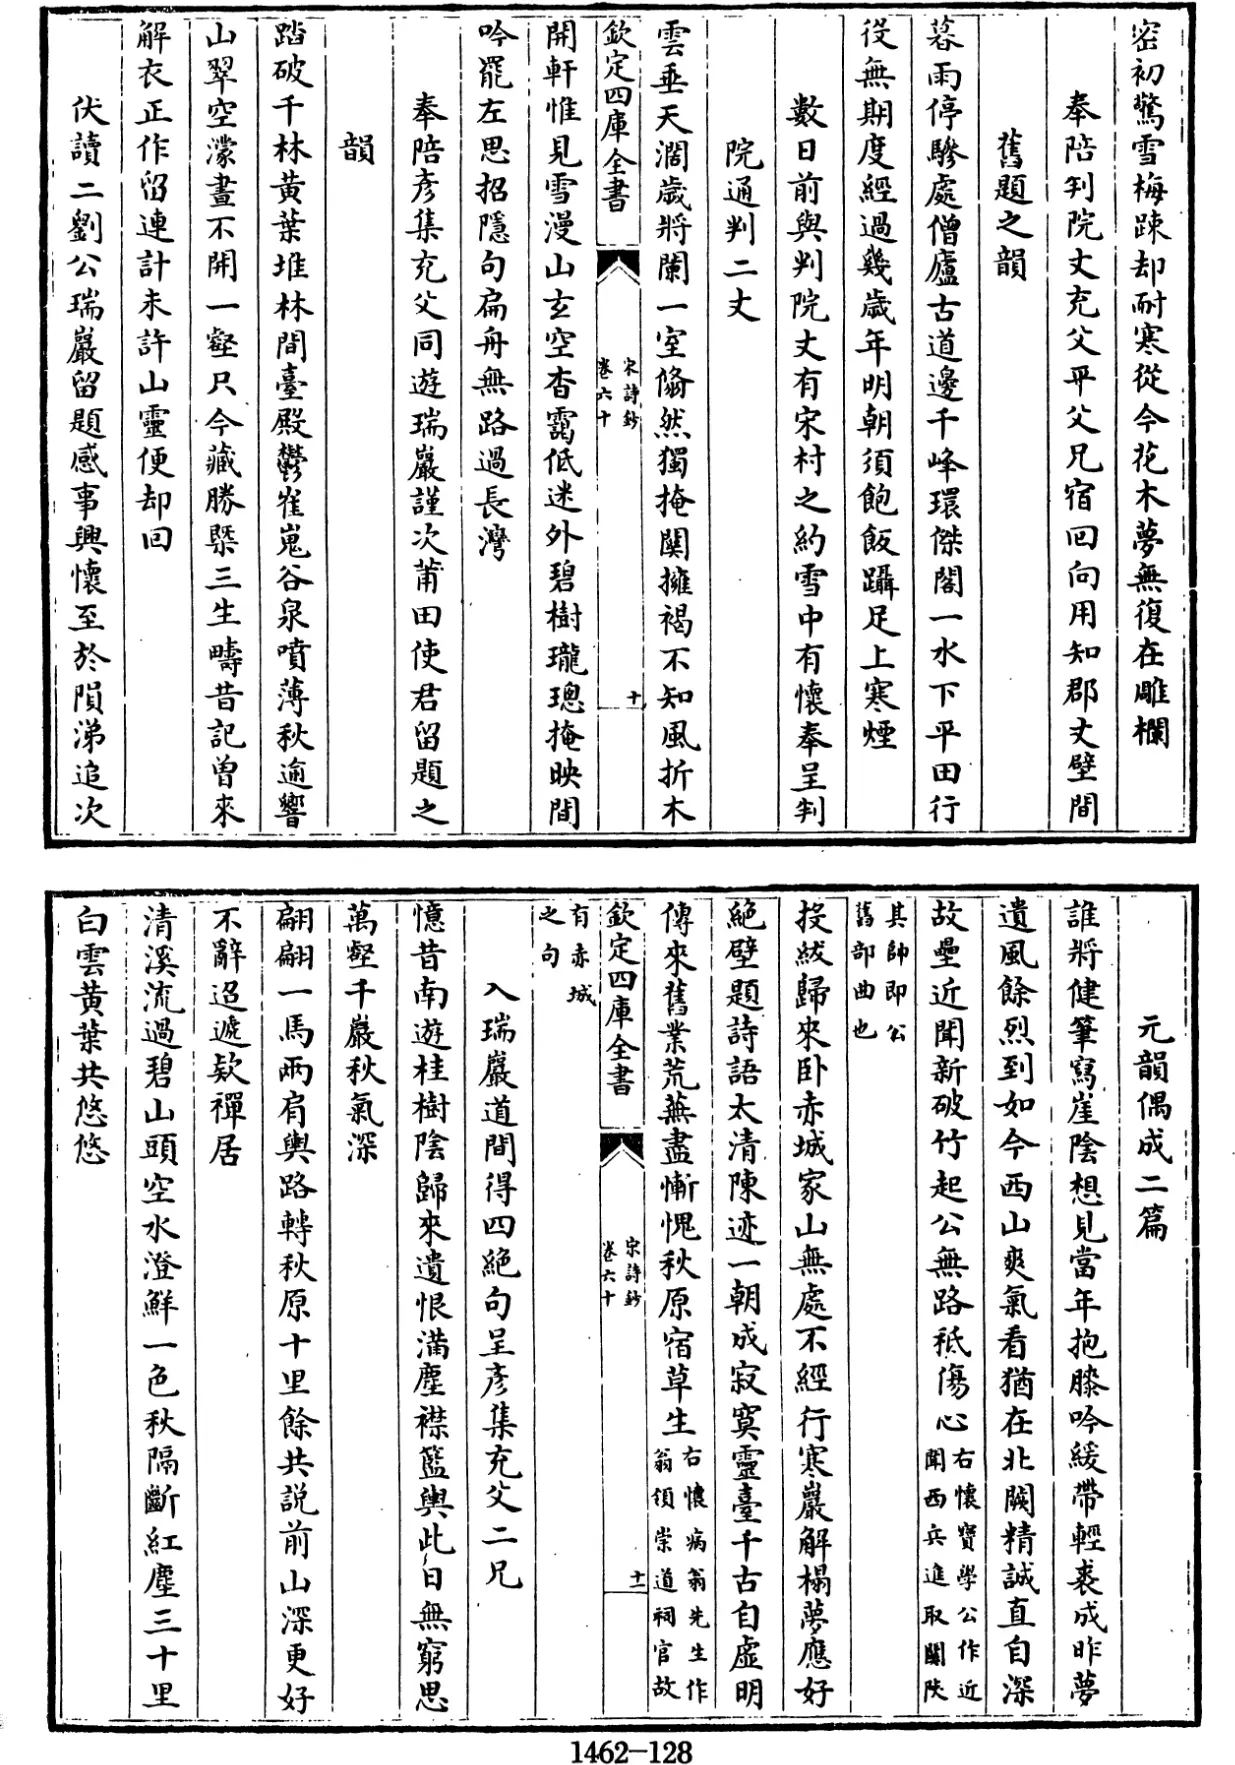 密初驚雪梅踈却耐寒從今花木夢無復在雕欄
奉陪判院丈充父平父兄宿回向用知郡丈壁間
舊題之韻
暮雨停驂處僧廬古道邊千峰環傑閣一水下平田行
役無期度經過幾歲年明朝須飽飯躡足上寒煙
數日前與判院丈有宋村之約雪中有懷奉呈判
院通判二丈
雲垂天濶歲將闌一室翛然獨掩關擁褐不知風折木
欽定四庫全書
宋詩鈔
卷六十
十
開軒惟見雪漫山玄空杳靄低迷外碧樹瓏璁掩映間
吟罷左思招隱句扁舟無路過長灣
奉陪彥集充父同遊瑞巖謹次莆田使君留題之
韻
踏破千林黃葉堆林間臺殿鬱崔嵬谷泉噴薄秋逾響
山翠空濛晝不開一壑只今藏勝槩三生疇昔記曾來
解衣正作留連計未許山靈便却回
伏讀二劉公瑞巖留題感事興懷至於隕涕追次
元韻偶成二篇
誰將健筆寫崖陰想見當年抱膝吟緩帶輕裘成昨夢
遺風餘烈到如今西山爽氣看猶在北闕精誠直自深
故壘近聞新破竹起公無路秪傷心
右懷寶學公作近
聞西兵進取關陜
其帥即公
舊部曲也
投紱歸來卧赤城家山無處不經行寒巖解榻夢應好
絕壁題詩語太清陳迹一朝成寂寞靈臺千古自虛明
傳來舊業荒蕪盡慚愧秋原宿草生
右懷病翁先生作
翁領崇道祠官故
欽定四庫全書
宋詩鈔
卷六十
十一
有赤城
之句
入瑞巖道間得四絕句呈彥集充父二兄
憶昔南遊桂樹陰歸來遺恨滿塵襟籃輿此日無窮思
萬壑千巖秋氣深
翩翩一馬兩肩輿路轉秋原十里餘共説前山深更好
不辭迢遞欵禪居
清溪流過碧山頭空水澄鮮一色秋隔斷紅塵三十里
白雲黃葉共悠悠
1462-128